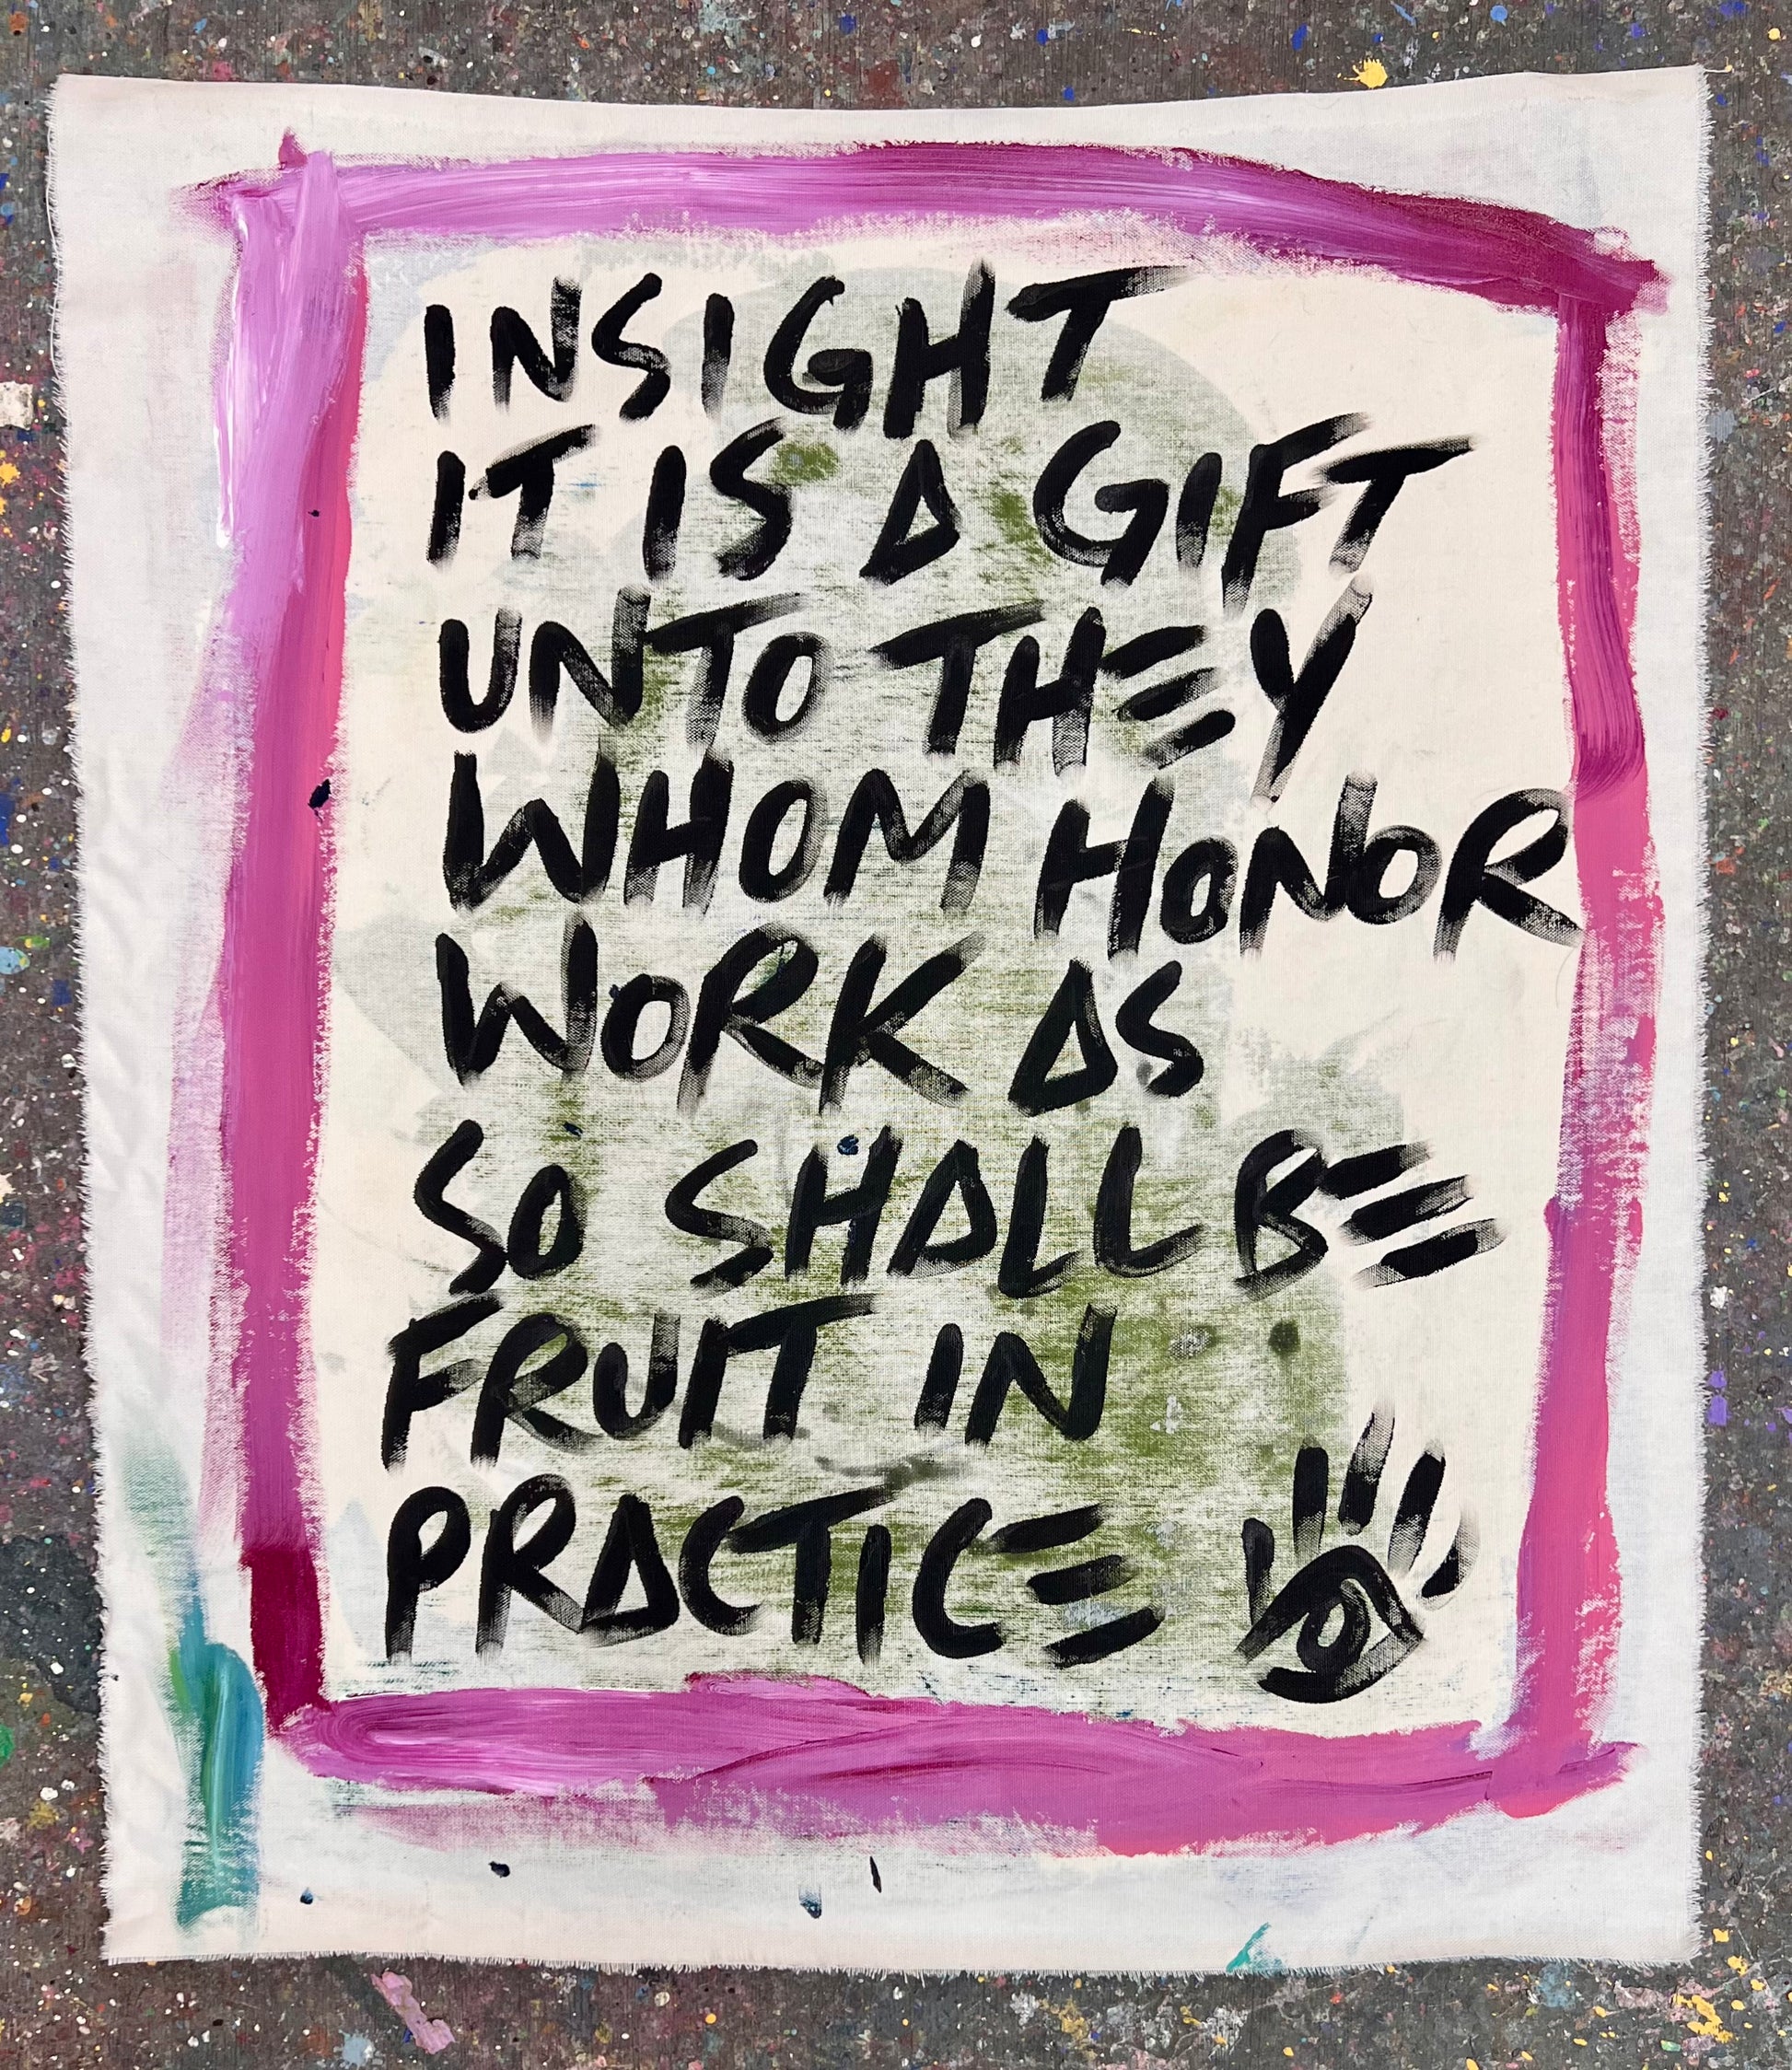 INSIGHT
IT IS A GIFT
UNTO THEY
WHOM HONOR
WORK AS
SO SHALL BE
FRUIT IN
PRACTICE